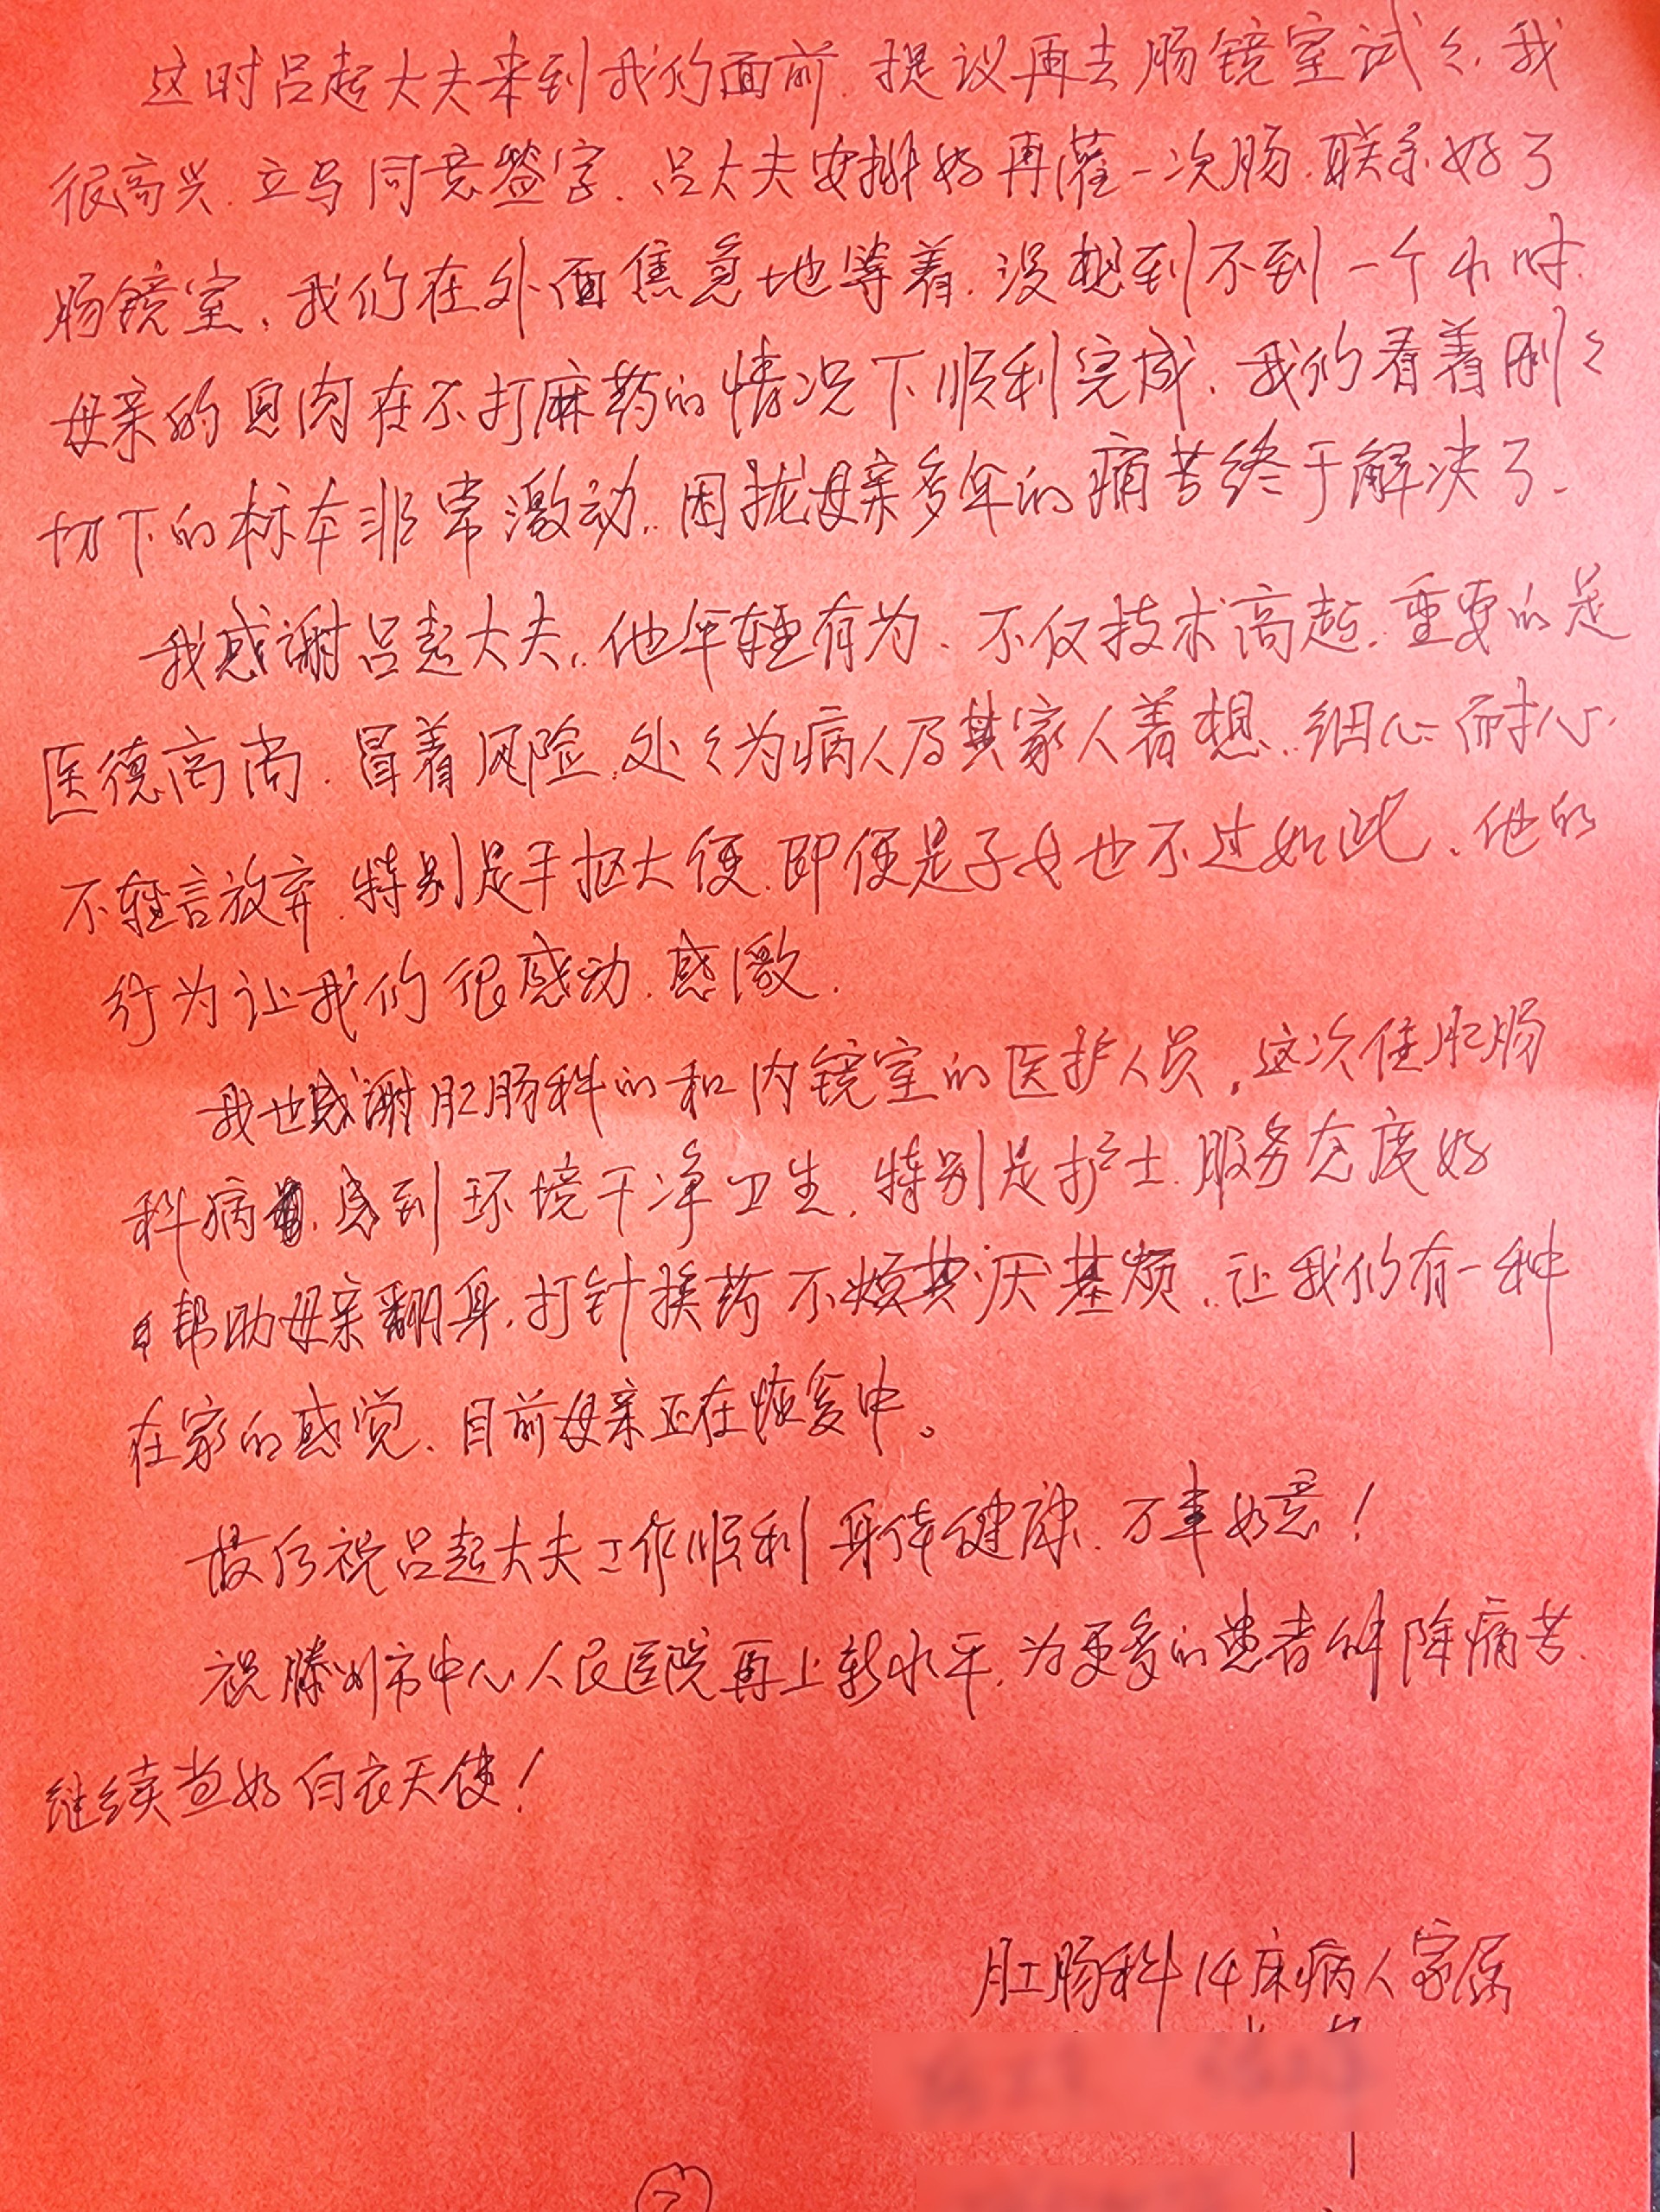 这时吕起大夫来到我们面前.提议再去肠镜室试々.我
很高兴.立马同意签字.吕大夫安排好再灌一次肠.联系好了
肠镜室,我们在外面焦急地等着.没想到不到一个小时.
母亲的息肉在不打麻药的情况下顺利完成.我们看着刚々
切下的标本非常激动.困扰母亲多年的痛苦终于解决了.
我感谢吕起大夫.他年轻有为、不仅技术高超.重要的是
医德高尚.冒着风险.处々为病人及其家人着想.细心耐心.
不轻言放弃.特别是手抠大便.即便是子女也不过如此、他的
行为让我们很感动.感激.
我也感谢肛肠科的和内镜室的医护人员,这次住肛肠
科病.感到环境干净卫生.特别是护士.服务态度好
帮助母亲翻身.打针换药不烦其厌其烦.让我们有一种
在家的感觉.目前母亲正在恢复中。
最后祝吕起大夫工作顺利身体健康.万事如意!
祝滕州市中心人民医院再上新水平.为更多的患者解除痛苦.
继续当好白衣天使!
肛肠科14床病人家属
②